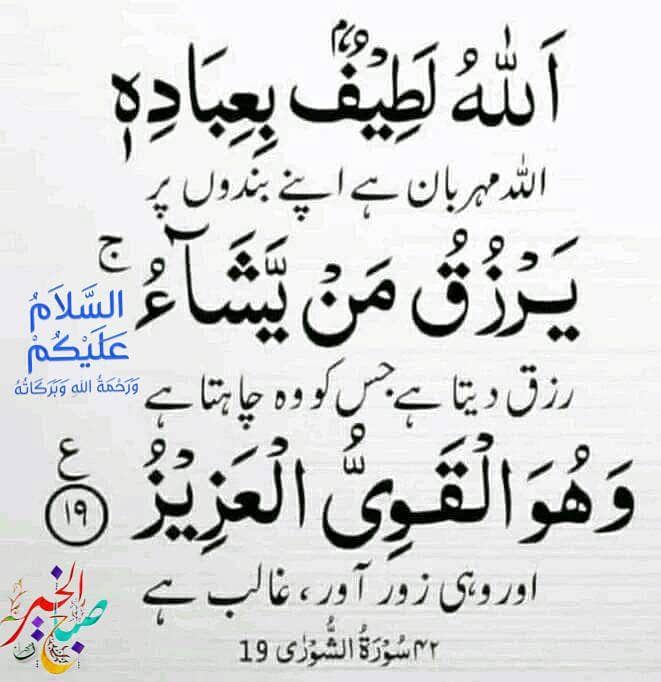 اَللّٰهُ لَطِيْفٌۢ بِعِبَادِهٖ
اللہ مہربان ہے اپنے بندوں پر
يَرْزُقُ مَنْ يَّشَآءُ ۚ
رزق دیتا ہے جس کو وہ چاہتا ہے
وَهُوَ الْقَوِىُّ الْعَزِيْزُ ع ١٩
اور وہی زور آور، غالب ہے
۴۲ سُوْرَةُ الشُّوْرٰى 19
السَّلَامُ
عَلَيْكُمْ
وَرَحْمَةُ اللهِ وَبَرَكَاتُهُ
صباح الخير